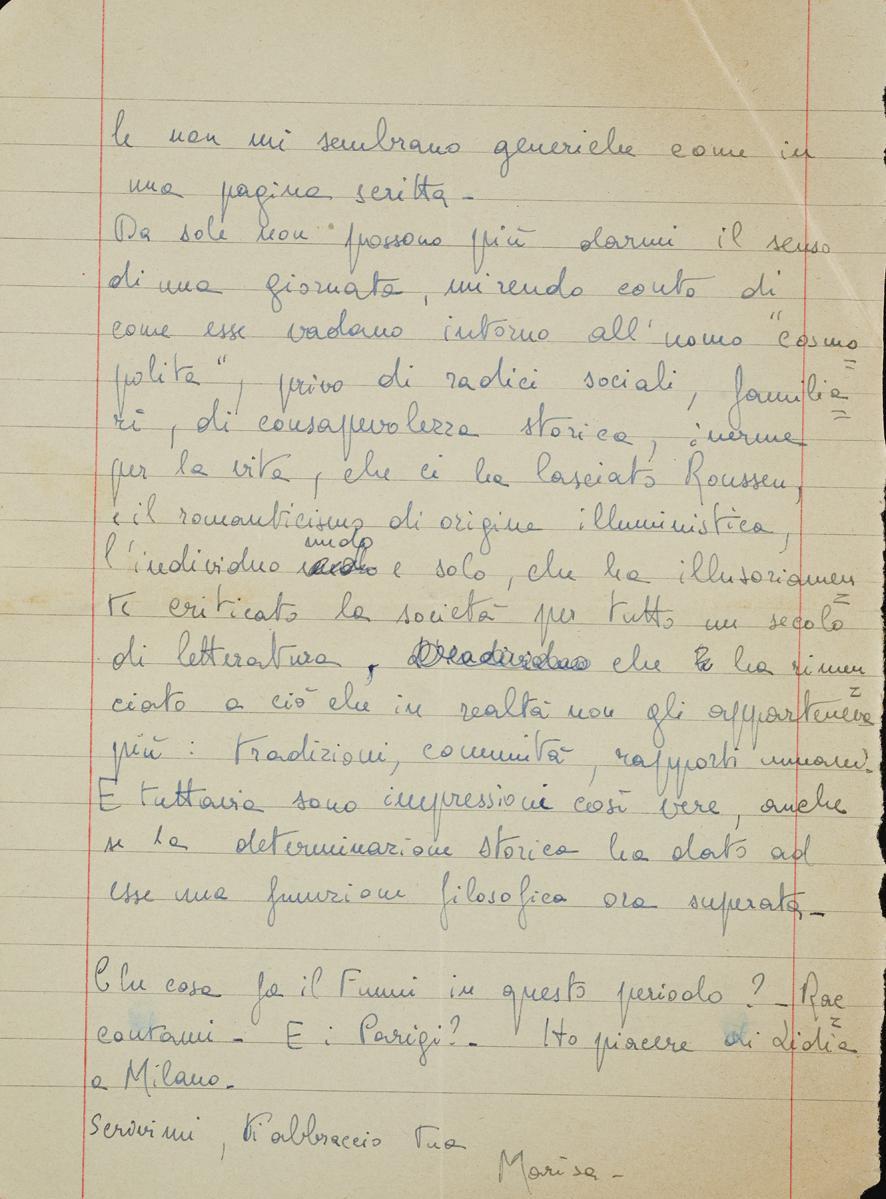 le non mi sembrano generiche come in
una pagina scritta -
Da sole non possono più darmi il senso
di una giornata, mi rendo conto di
come esse vadano intorno all'uomo "cosmo=
polita", privo di radici sociali, familia=
ri, di consapevolezza storica, inerme
per la vita, che ci ha lasciato Rousseu,
e il romanticismo di origine illuministica,
l'individuo nudo e solo, che ha illusoriamen=
te criticato la società per tutto un secolo
di letteratura, che ha rinun=
ciato a ciò che in realtà non gli apparteneva
più: tradizioni, comunità, rapporti umani.
E tuttavia sono impressioni così vere, anche
se la determinazione storica ha dato ad
esse una funzione filosofica ora superata -
Che cosa fa il Fummi in questo periodo? - Rac=
contami - E i Parigi? - Ho piacere di Lidia
a Milano.
Scrivimi, ti abbraccio tua
Marisa -